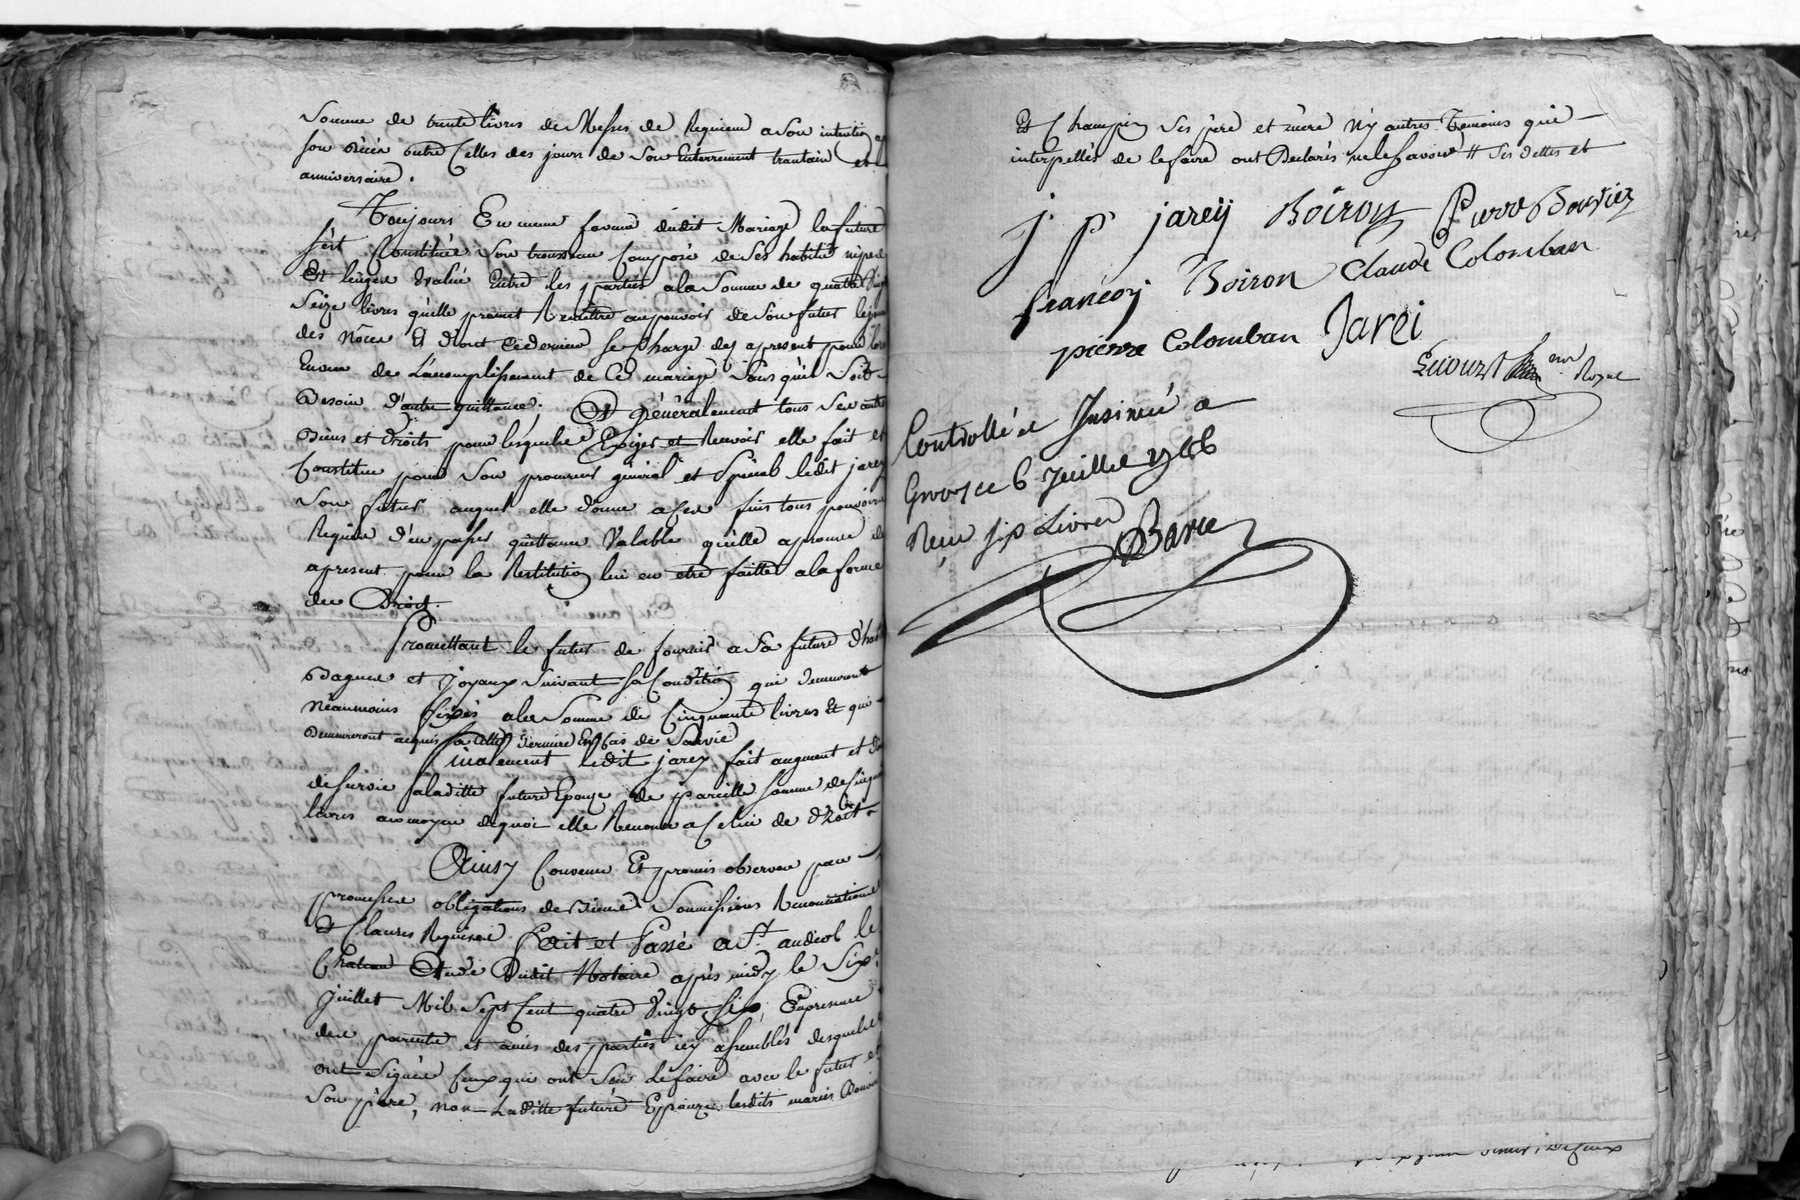 Somme de trente livres de Messes de Requiem a son intention
son décès outre Celles des jours de son Enterrement trantain et
anniversaire.
Toujours En meme faveur dudit Mariage la future
s'est Constituée Son trousseau Composé de Ses habits
Et linges Evalué Entre les parties a la Somme de quatre vingt
Seize livres qu'elle promet Remettre au pouvoir de Son futur le jour
des nôces Et dont cedernier se Charge des apresent pour lors
En cas de L'accomplissement de Ce mariage Sans qu'il Soit
Besoin d'autre quittance; Et généralement tous Ses autres
Biens et droits pour lesquels Exiger et Recevoir elle fait et
Constitue pour Son procureur général et Spécial ledit jarey
Son futur auquel elle donne a ces fins tous pouvoirs
Requis d'en passer quittance Valable qu'elle aprouve de
apresent pour la Restitution lui en etre faitte a la forme
du Droit.
Promettant le futur de fournir a Sa future d'habits
Bagues et joyaux Suivant Sa Condition qui demeurent
Néanmoins fixés a la Somme de Cinquante livres Et qui
Demeureront acquis a Cette dernière En Cas de Survie
Finalement ledit jarey fait augment et don
de survie a la ditte future Epouze de pareille somme de Cinquante
livres au moyen dequoi elle Renonce a Celui de droit
Ainsy Convenu Et promis observer par
promesses obligations de Biens Soumissions Renonciations
Et Clauses Requises fait et Passé à St. andéol le
Chateau Etude Dudit Notaire après midy le Six
Juillet Mil Sept Cent quatre Vingt Six, En presence
des parents et amis des parties icy assemblés desquels
ont Signée Ceux qui ont Scu le faire avec le futur et
Son père, non Laditte future Epouze lesdits mariés Bouvier
Et Champin Ses père et mère Ny autres Temoins qui
interpellés de le faire ont Declarés ne le Scavoir // Ses dettes et
j p jareÿ Boiron Pierre Bouvier
françois Boiron Claude Colomban
pierre Colomban Jarei
nore Royal
Controllé et Insinué a
Givors ce 6 Juillet 1786
Reçu six Livres